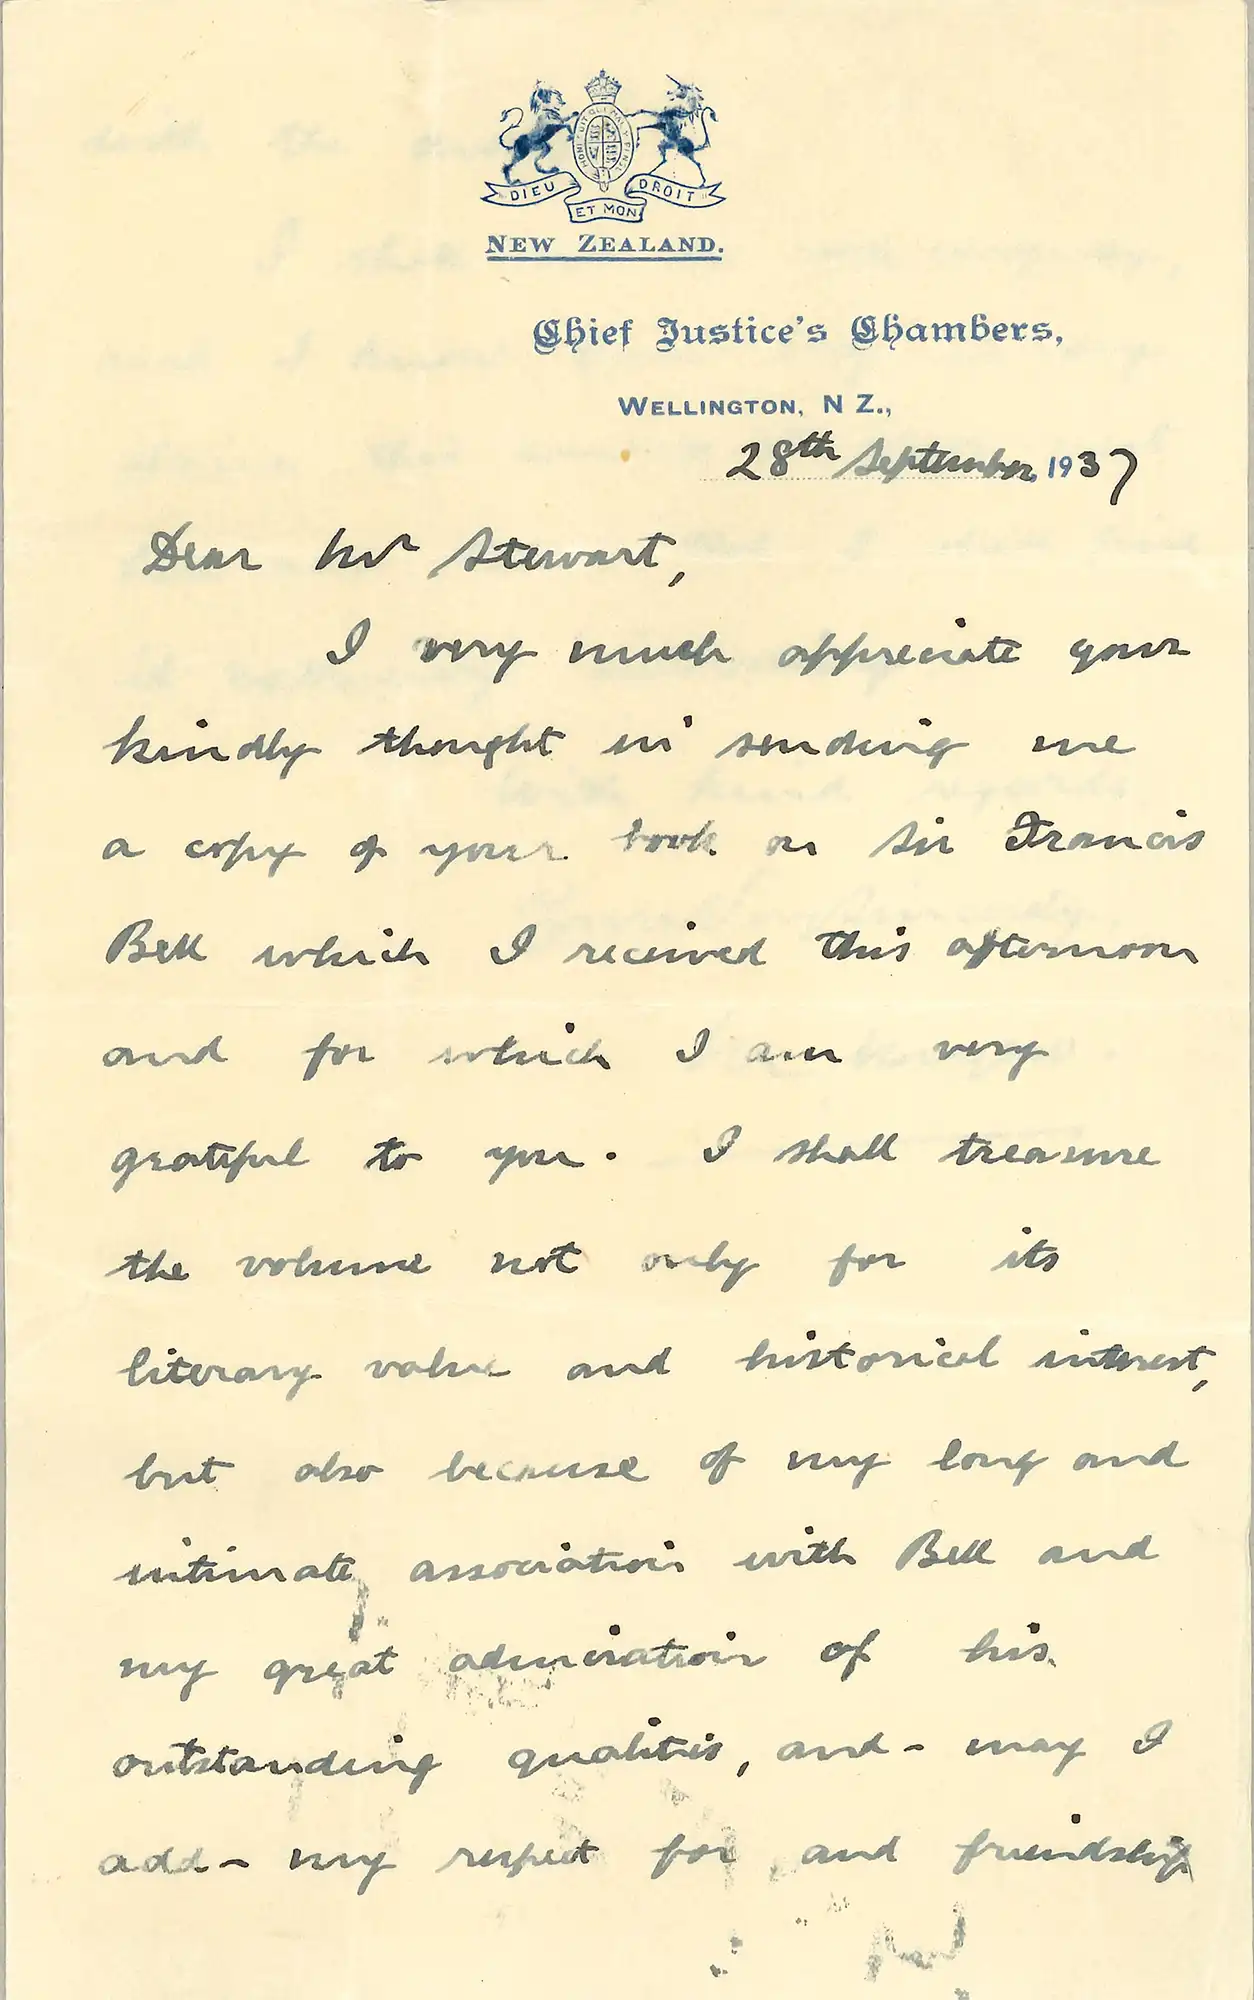 HONI SOIT QUI MAL Y PENSE
DIEU ET MON DROIT
NEW ZEALAND.
Chief Justice's Chambers,
WELLINGTON, N Z.,
28th September, 1937
Dear Mr Stewart,
I very much appreciate your
kindly thought in sending me
a copy of your book on Sir Francis
Bell which I received this afternoon
and for which I am very
grateful to you. I shall treasure
the volume not only for its
literary value and historical interest,
but also because of my long and
intimate association with Bell and
my great admiration of his
outstanding qualities, and – may I
add – my respect for, and friendship